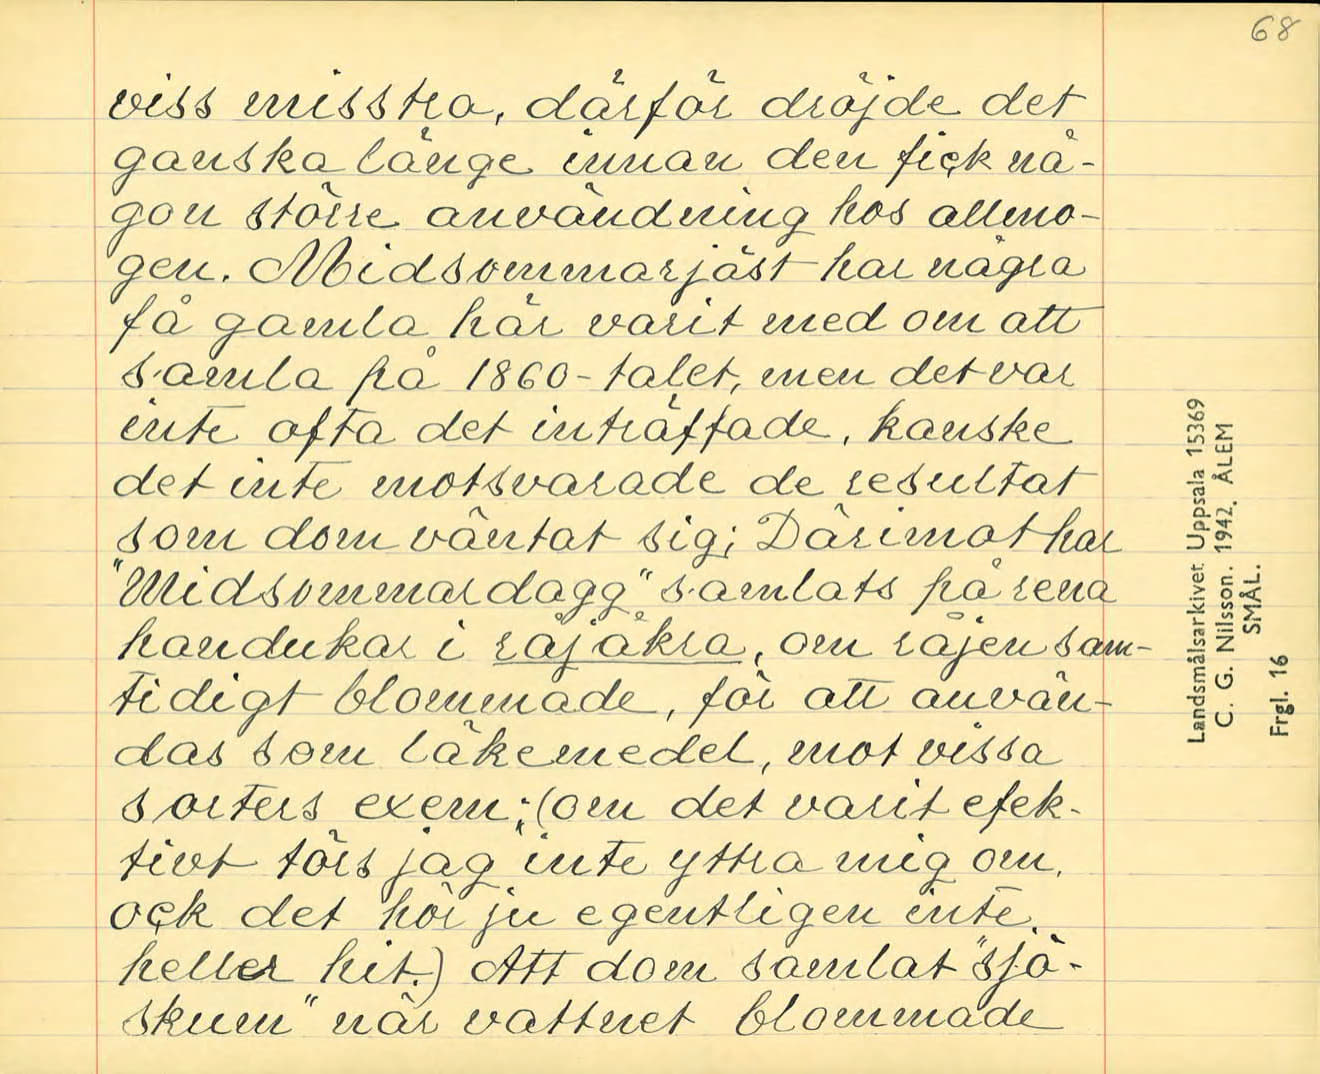 68
viss misstro, därför dröjde det
ganska länge innan den fick nå-
gon större användning hos allmo-
gen. Midsommarjäst har några
få gamla här varit med om att
samla på 1860-talet, men det var
inte ofta det inträffade, kanske
det inte motsvarade de resultat
som dom väntat sig; Därimot har
"Midsommardagg" samlats på rena
handukar i råjåkra, om råjen sam-
tidigt blommade, för att använ-
das som läkemedel, mot vissa
sorters exem; (om det varit efek-
tivt törs jag inte yttra mig om,
ock det hör ju egentligen inte
heller hit.) Att dom samlat "sjö-
skum" när vattnet blommade
Landsmålsarkivet Uppsala 15369
C. G. Nilsson. 1942. ÅLEM
SMÅL.
Frgl. 16